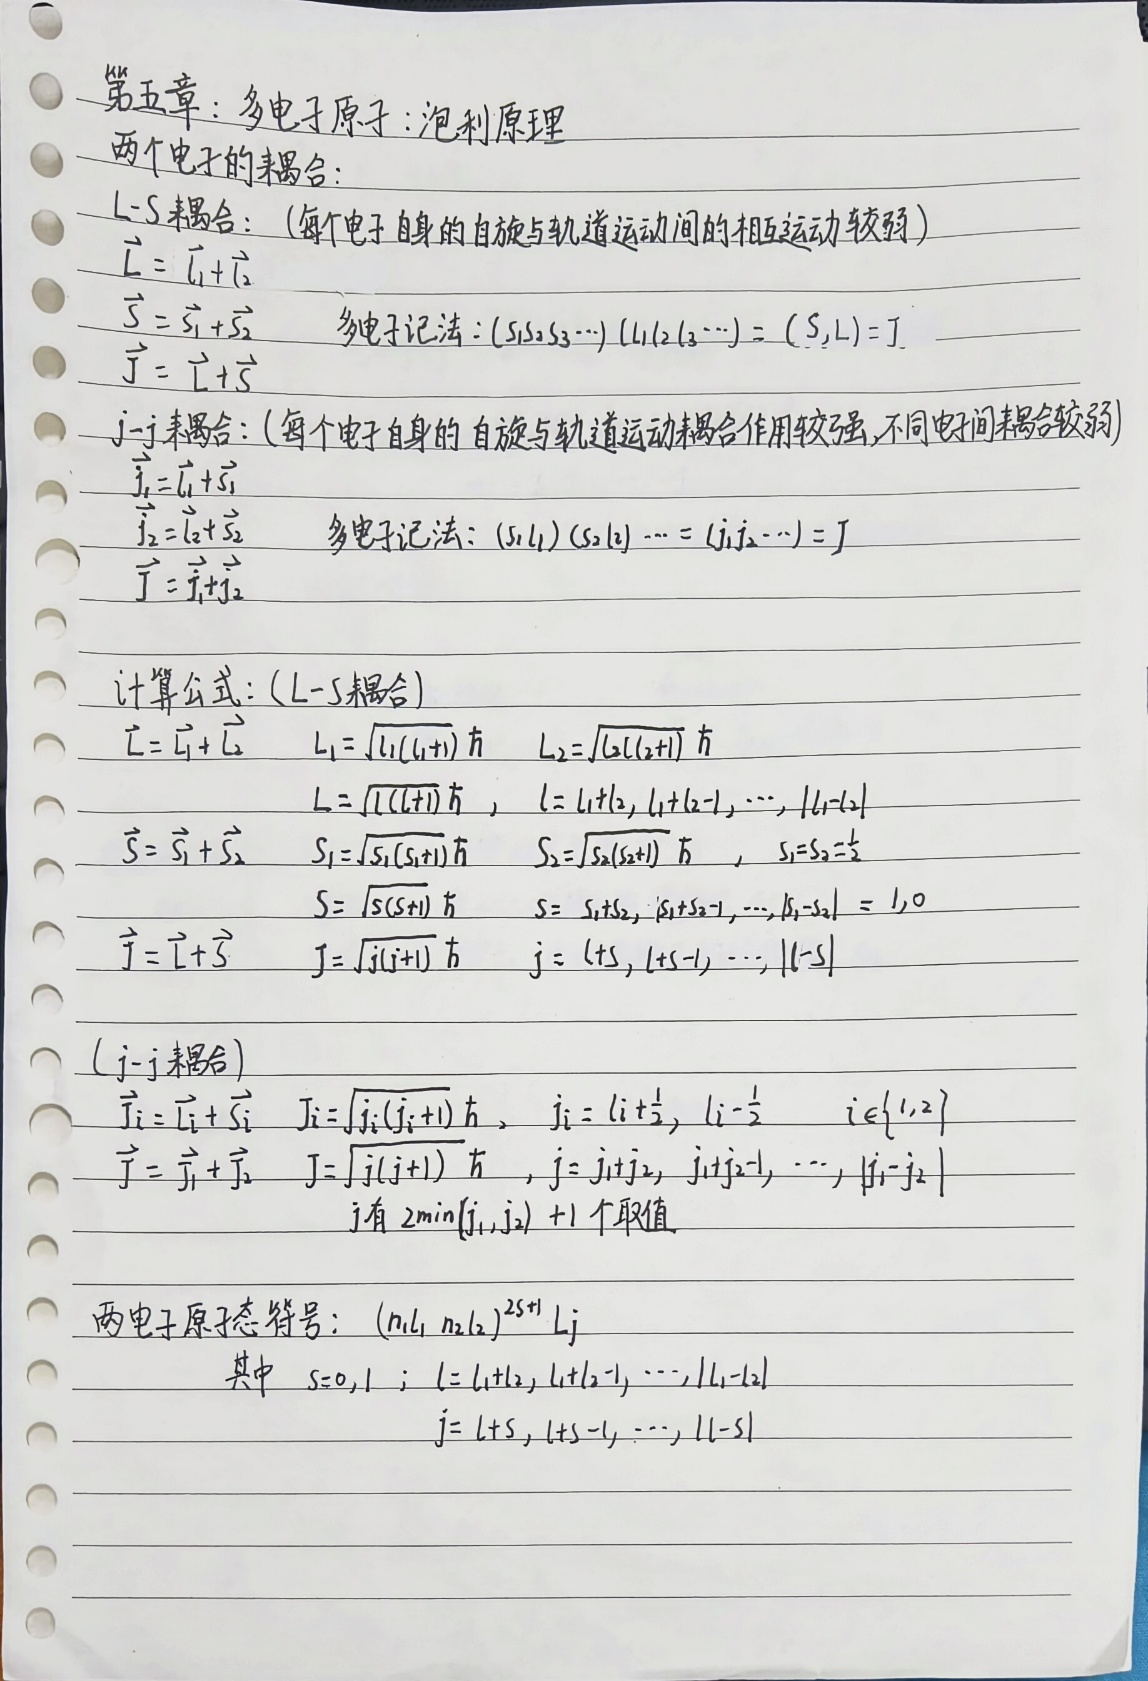 第五章：多电子原子：泡利原理
两个电子的耦合：
L-S耦合：（每个电子自身的自旋与轨道运动间的相互运动较弱）
L⃗ = l⃗₁+l⃗₂
S⃗ = s⃗₁+s⃗₂ 多电子记法：(s₁s₂s₃…)(l₁l₂l₃…) = (S,L) = J
J⃗ = L⃗+S⃗
j-j耦合：（每个电子自身的自旋与轨道运动耦合作用较强,不同电子间耦合较弱）
j⃗₁=l⃗₁+s⃗₁
j⃗₂=l⃗₂+s⃗₂ 多电子记法：(s₁l₁)(s₂l₂)… = (j₁j₂…) = J
J⃗ = j⃗₁+j⃗₂
计算公式：（L-S耦合）
L⃗=L⃗₁+L⃗₂ L₁=√(l₁(l₁+1)) ħ L₂=√(l₂(l₂+1)) ħ
L=√(l(l+1)) ħ , l=l₁+l₂, l₁+l₂-1, …, |l₁-l₂|
S⃗=S⃗₁+S⃗₂ S₁=√(s₁(s₁+1)) ħ S₂=√(s₂(s₂+1)) ħ , s₁=s₂=½
S=√(s(s+1)) ħ s= s₁+s₂, |s₁+s₂-1, …, |s₁-s₂| = 1,0
J⃗=L⃗+S⃗ J=√(j(j+1)) ħ j= l+s, l+s-1, …, |l-s|
（j-j耦合）
J⃗ᵢ=L⃗ᵢ+S⃗ᵢ Jᵢ=√(jᵢ(jᵢ+1)) ħ , jᵢ=lᵢ+½, lᵢ-½ i∈{1,2}
J⃗=J⃗₁+J⃗₂ J=√(j(j+1)) ħ , j=j₁+j₂, j₁+j₂-1, …, |j₁-j₂|
j有 2min(j₁,j₂)+1个取值
两电子原子态符号： (n₁l₁ n₂l₂)²ˢ⁺¹Lj
其中 s=0,1 ; l=l₁+l₂, l₁+l₂-1, …, |l₁-l₂|
j=l+s, l+s-1, …, |l-s|